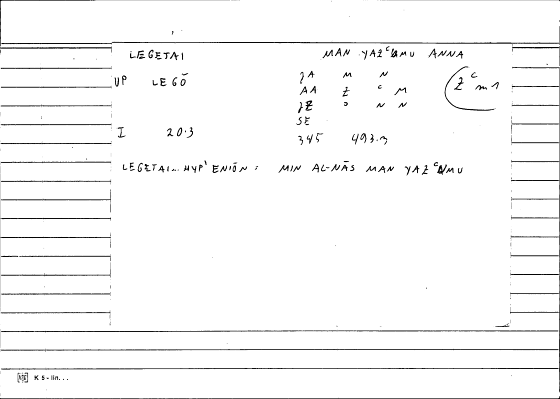 LEGETAI MAN YAZᶜAMU ANNA
VP LEGŌ JA M N
AA Z ᶜ M (Zᶜm1
JZ ᵓ N N
SE
I 20.3 345 493.3
LEGETAI... HYP' ENIŌN : MIN AL-NĀS MAN YAZᶜAMU
K 5 - lin. . .